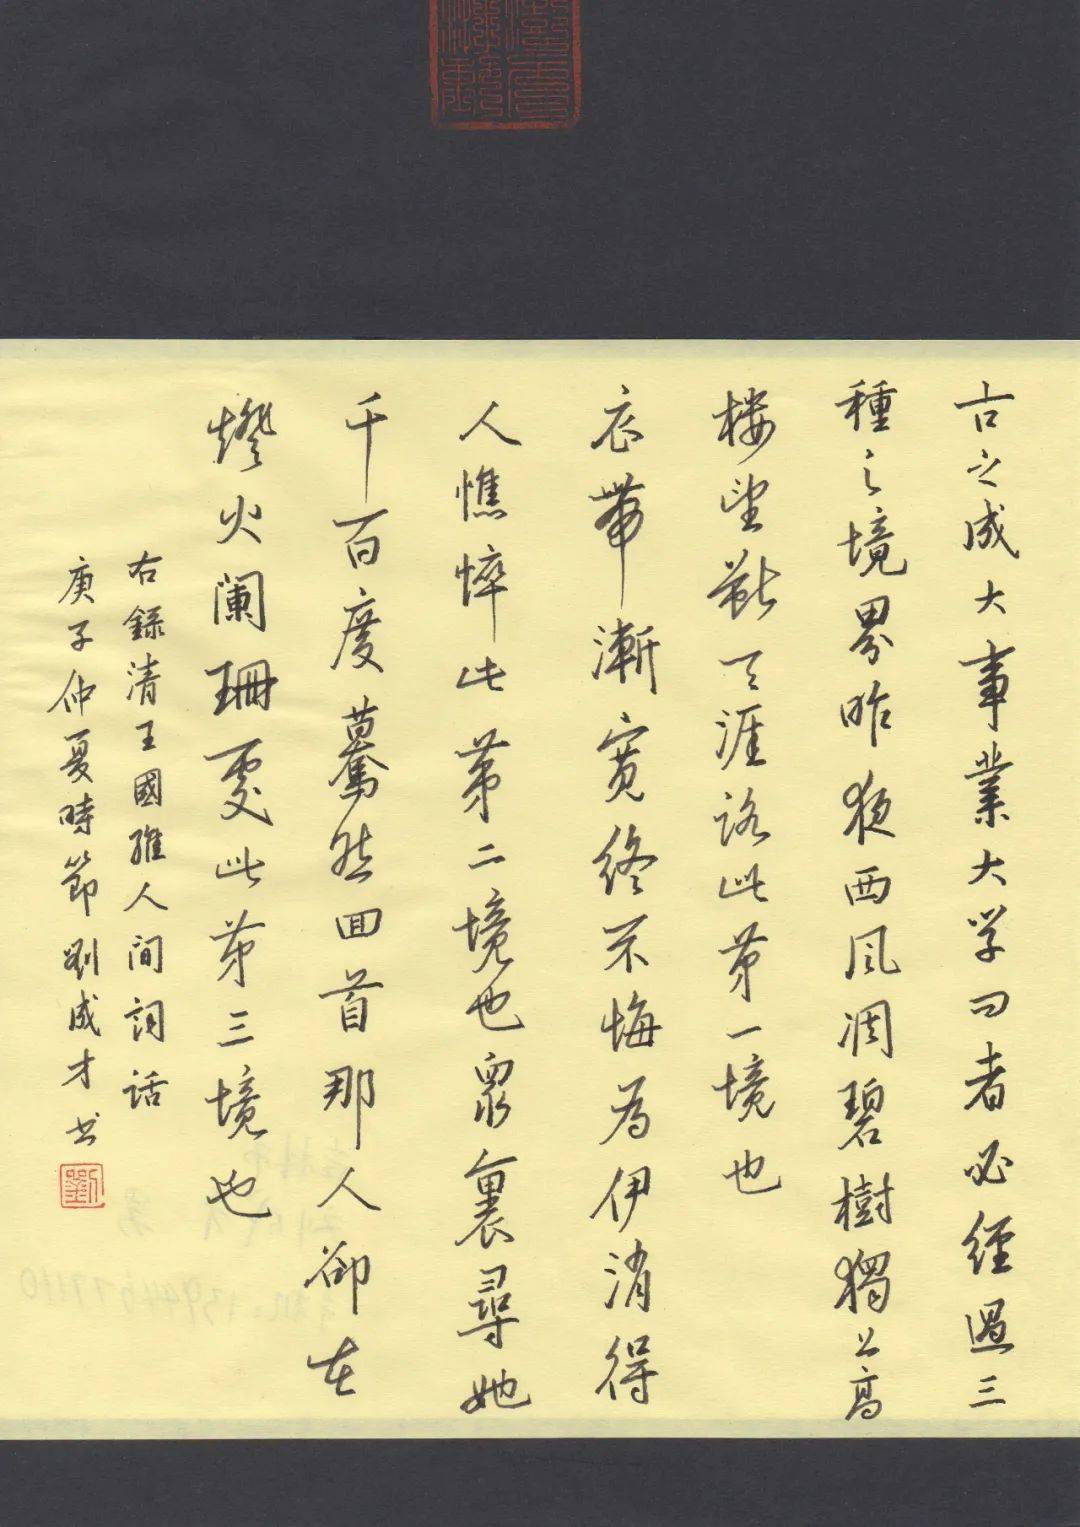 古之成大事業大学问者必經過三
種之境界昨夜西风凋碧樹獨上高
楼望斷天涯路此第一境也
衣帶漸宽終不悔為伊消得
人憔悴此第二境也眾裏尋她
千百度驀然回首那人卻在
燈火阑珊處此第三境也
右錄清王國維人间词话
庚子仲夏時節劉成才书
劉